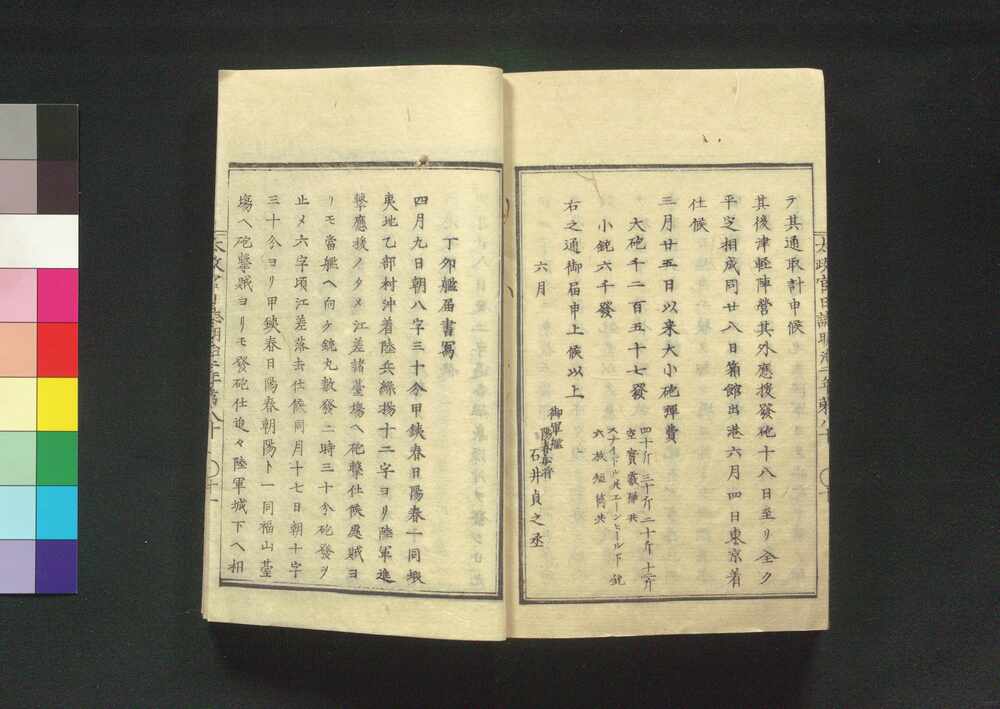 テ其通取計申候
其後津軽陣營其外應援發砲十八日至リ全ク
平定相成同廿八日箱館出港六月四日東京着
仕候
三月廿五日以来大小砲彈費
大砲千二百五十七發
四十斤三十斤二十斤十二斤
空實霰彈共
小銃六千發
スナイドル及エーンヒールド銃
六挺短筒共
右之通御届申上候以上
六月
御軍艦
陽春船將
石井貞之丞
丁卯艦届書寫
四月九日朝八字三十分甲鉄春日陽春一同蝦
夷地乙部村沖着陸兵繰揚十二字ヨリ陸軍進
撃應援ノタメ江差諸臺塲ヘ砲撃仕候處賊ヨ
リモ當艦ヘ向ケ銃丸數發二時三十分砲發ヲ
止メ六字頃江差落去仕候同月十七日朝十字
三十分ヨリ甲鉄春日陽春朝陽ト一同福山臺
塲ヘ砲撃賊ヨリモ發砲仕追々陸軍城下ヘ相
太政官日誌明治二年第八十